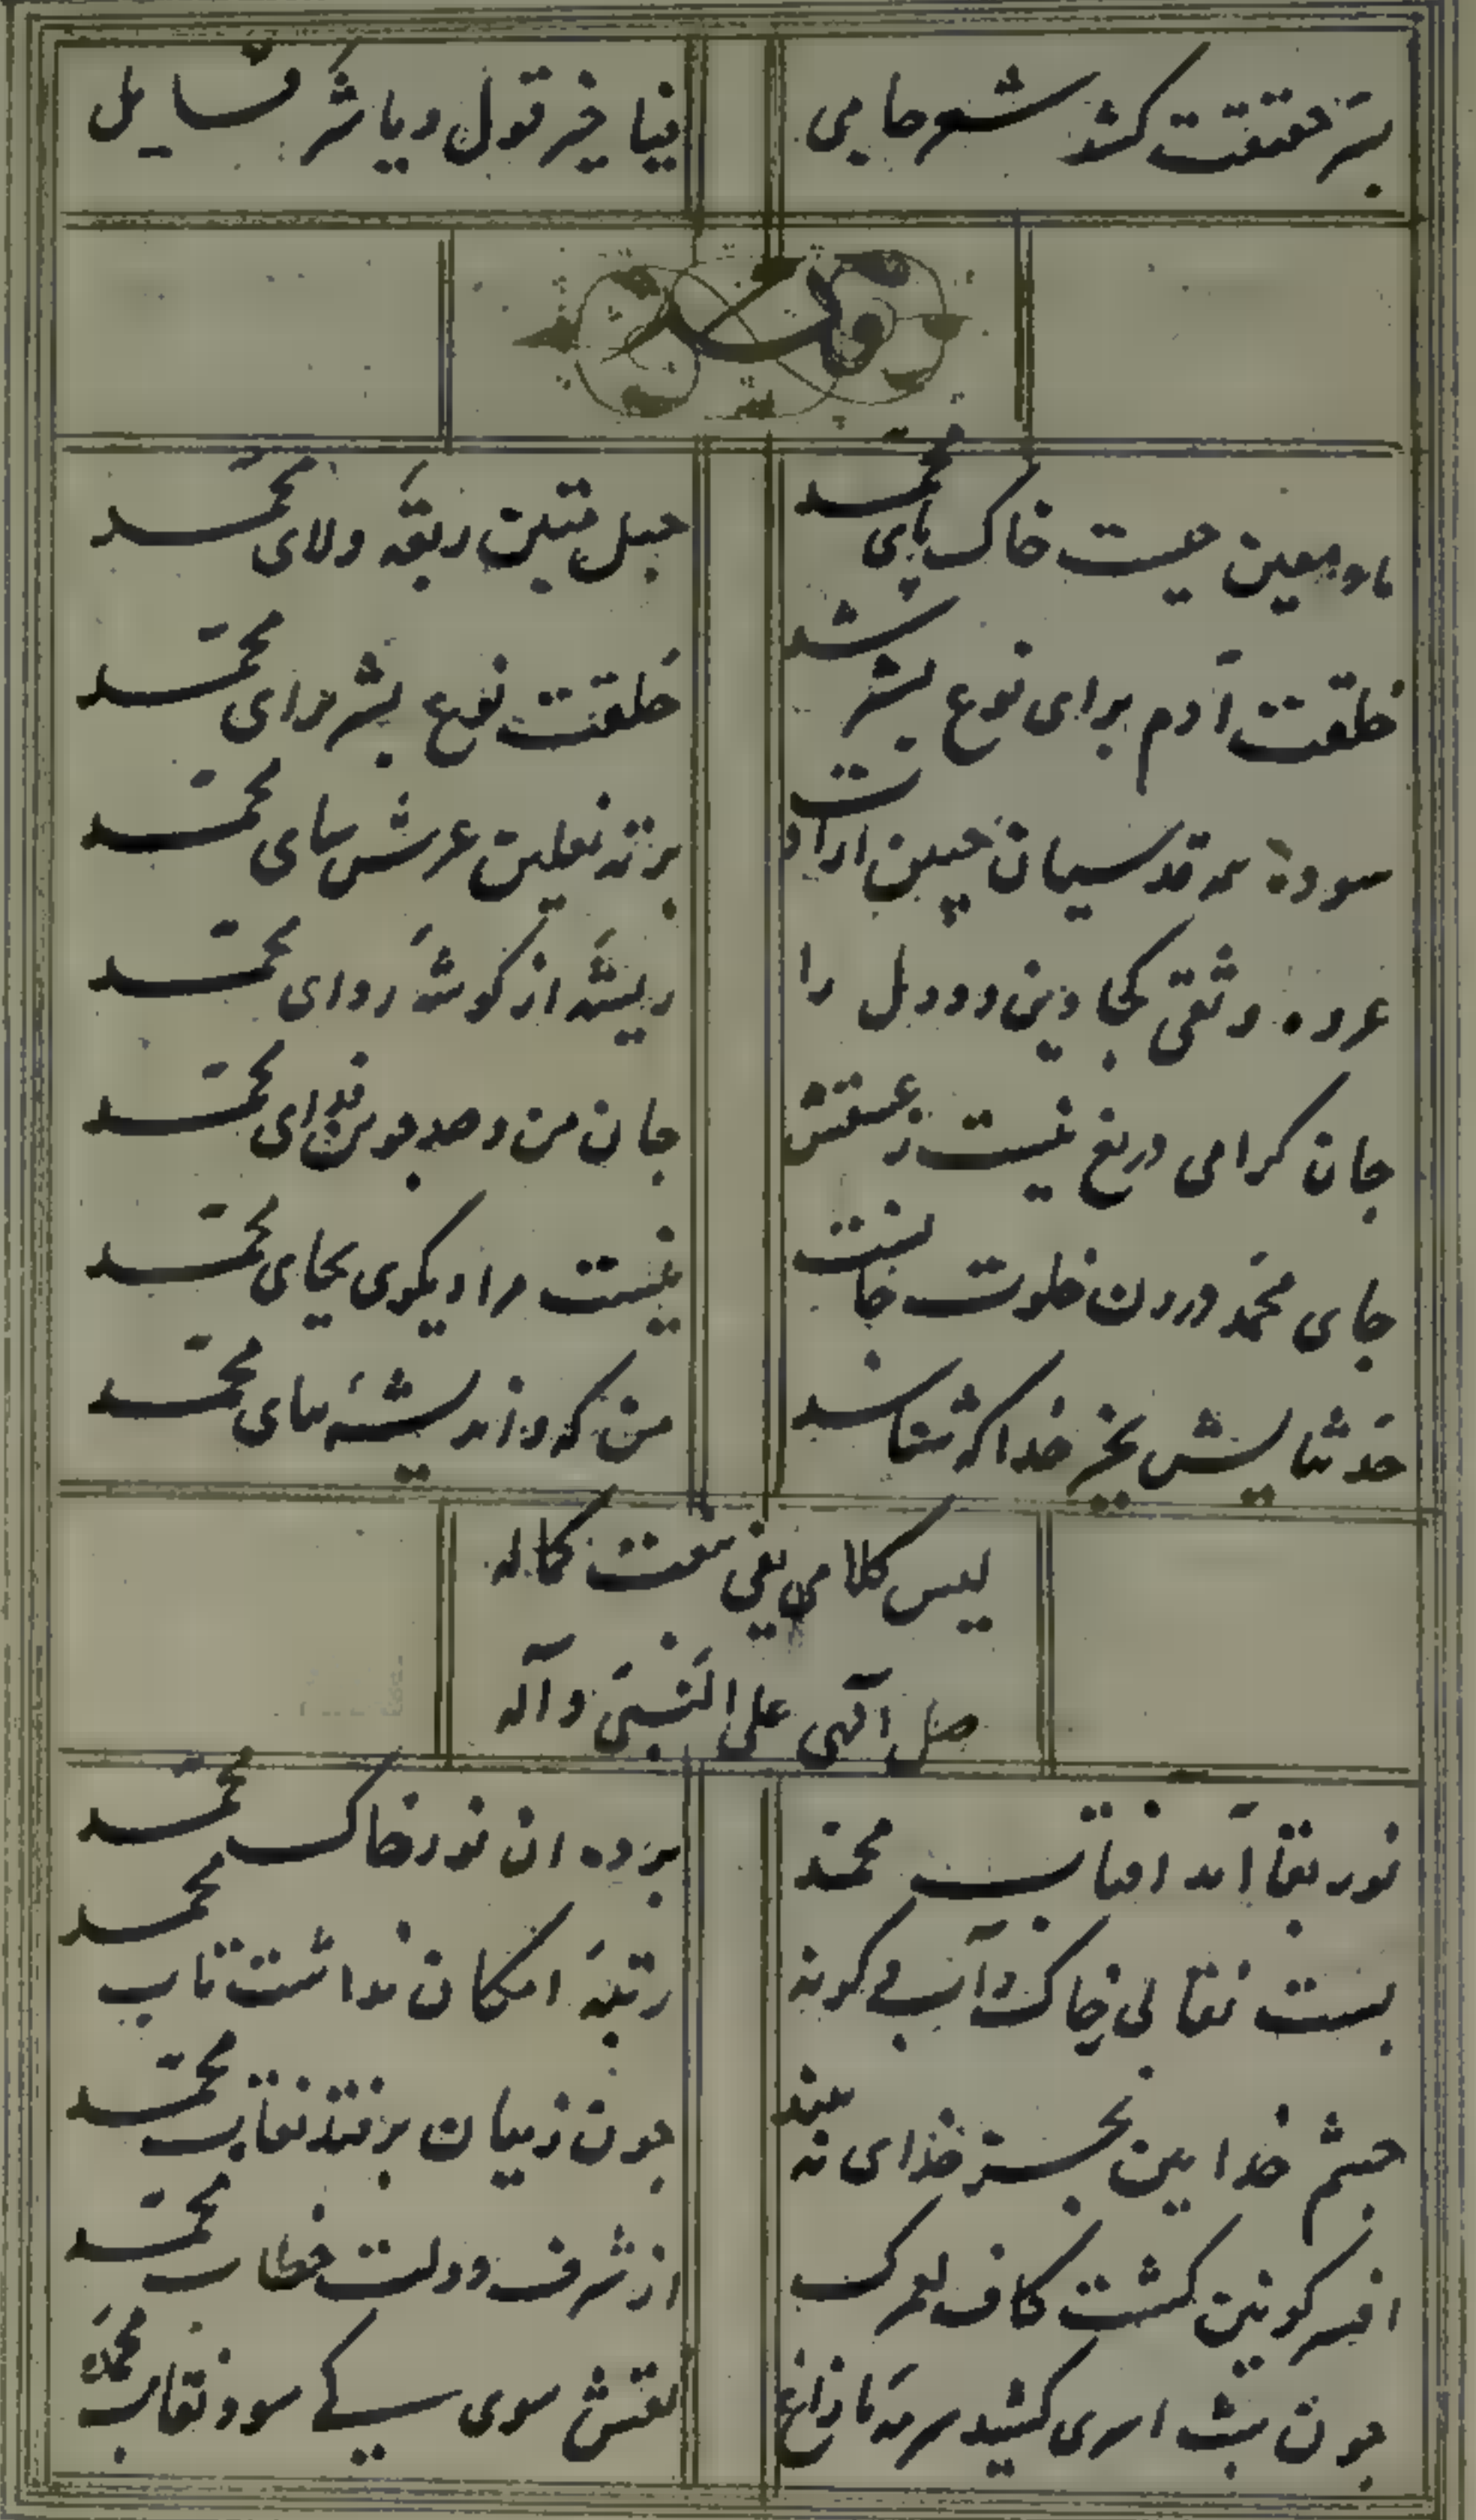 بسر حقیقت کشد شعر جامی
فیا خیر قول و یا شر قایل
وله
ماه معین چیست خاک پای محمد
حبل متین ربقهٔ ولای محمد
خلقت آدم برای نوع بشر شد
خلقت نوع بشر برای محمد
سوده همه قدسیان جبین ارادت
بر ته نعلین عرش سای محمد
عروه وثقی کجا دین و دل را
ریشهٔ از کوشهٔ ردای محمد
جان کرامی دریغ نیست ز عشقش
جان من و صد چو من فدای محمد
جای محمد درون خلوت جانست
نیست مرا دیکری بجای محمد
حد ثنایش بجز خدا که شناسد
من که و اندیشهٔ ثنای محمد
لیس کلامی یفی بنعت کماله
صل الهی علی النبی و آله
نور بقا آمد افتاب محمد
پرده ان نور خاک محمد
بست نقابی ز خاک و آب و کرنه
رتبهٔ امکان نداشت تاب محمد
چشم خدا بین بجز خدای نه بیند
چون ز میان بر فتد نقاب محمد
افسر کونین کشت کاف لعمرک
از شرف دولت خطاب محمد
چون بشب اسری کشید سرمهٔ ما زاغ
نقش سوی کے سود نقاب محمد